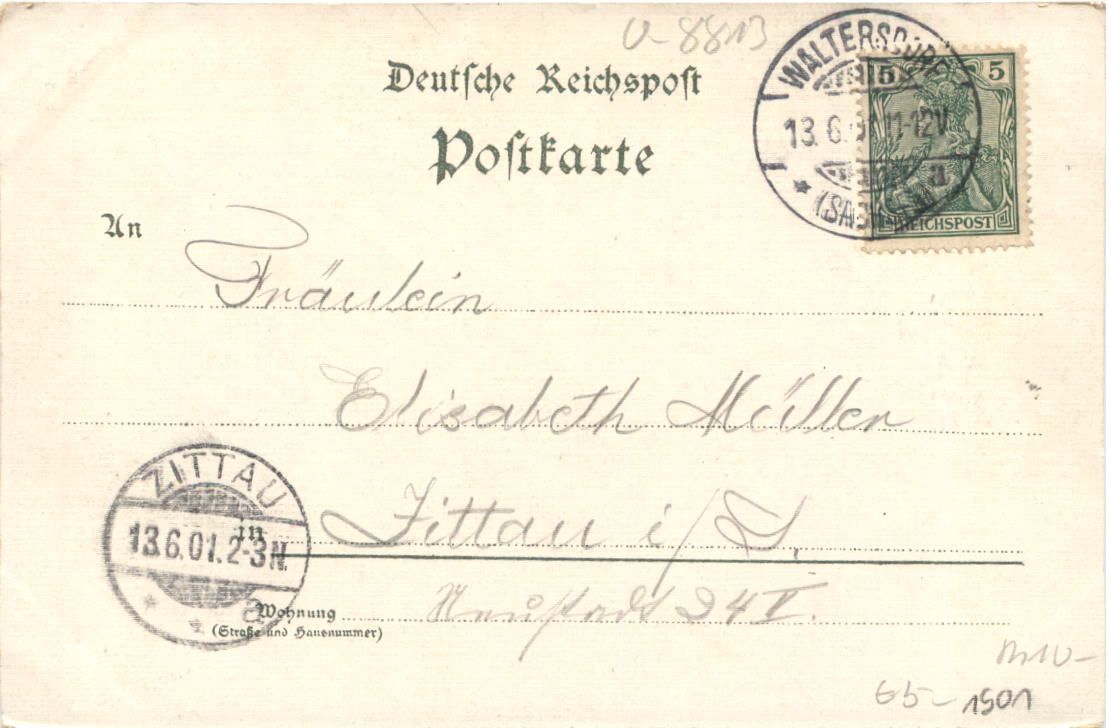 U-8813
Deutsche Reichspost
Postkarte
WALTERSDORF
13.6.01.11-12V.
a
(SACHSEN)
5 5
REICHSPOST
An
Fräulein
Elisabeth Müller
in Zittau i/S.
ZITTAU
13.6.01.2-3N.
a
Wohnung Neustadt 24 I.
(Straße und Hausnummer)
65-
1901